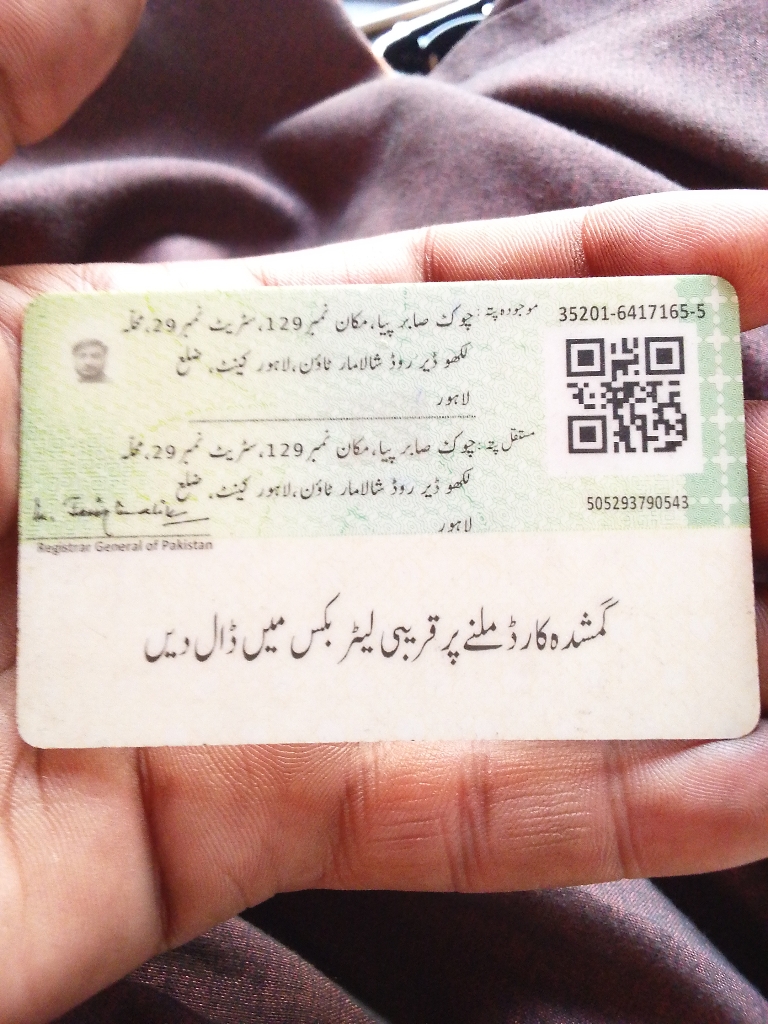 35201-6417165-5
موجودہ پتہ: چوک صابر پیا، مکان نمبر 129، سٹریٹ نمبر 29، محلہ
لکھو ڈیر روڈ شالامار ٹاؤن، لاہور کینٹ، ضلع
لاہور
مستقل پتہ: چوک صابر پیا، مکان نمبر 129، سٹریٹ نمبر 29، محلہ
لکھو ڈیر روڈ شالامار ٹاؤن، لاہور کینٹ، ضلع
لاہور
505293790543
Registrar General of Pakistan
گمشدہ کارڈ ملنے پر قریبی لیٹر بکس میں ڈال دیں